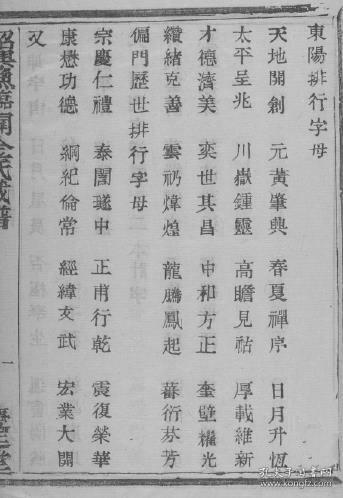 東陽排行字母
天地開創 元黃肇興 春夏禪序 日月升恆
太平呈兆 川嶽鍾靈 高瞻見祜 厚載維新
才德濟美 奕世其昌 中和方正 奎壁耀光
纘緒克善 雲礽煒煌 龍騰鳳起 蕃衍芬芳
偏門歷世排行字母
宗慶仁禮 泰閏遂中 正甫行乾 震復榮華
康懋功德 綱紀倫常 經緯文武 宏業大開
又
一
孔夫子旧书网